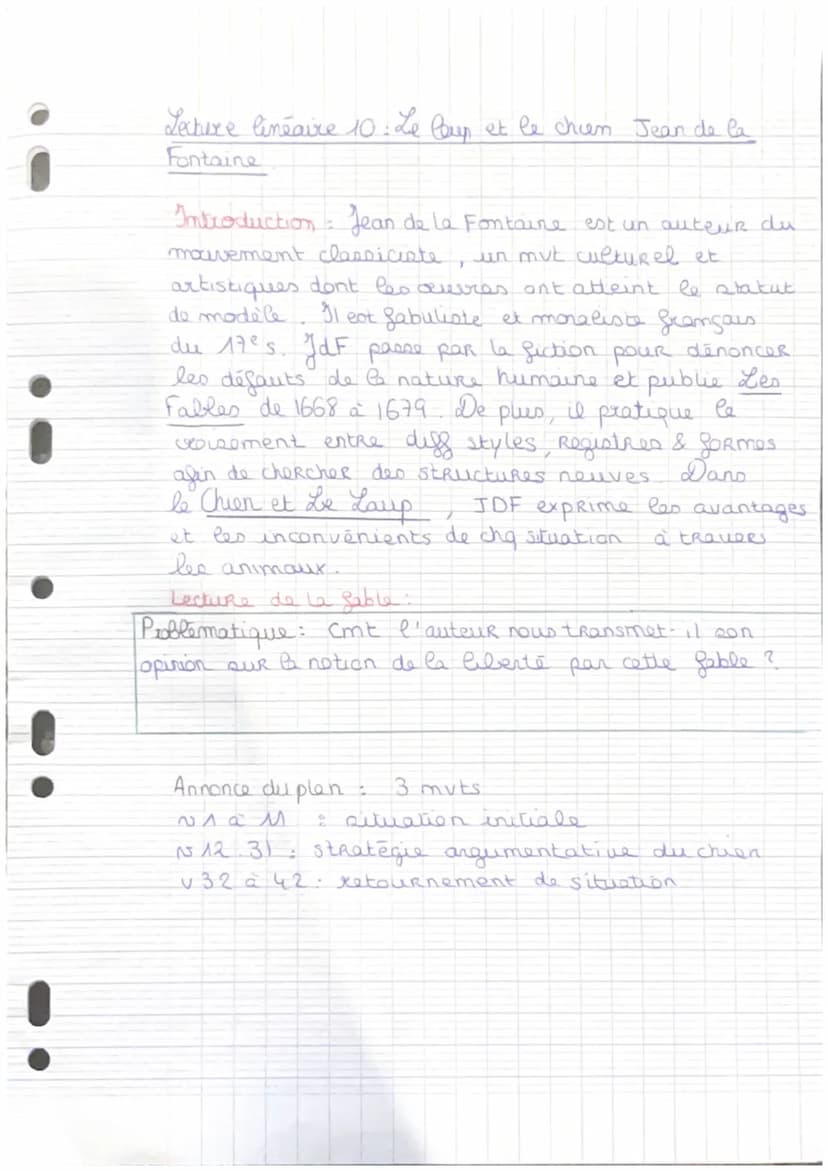 Lecture linéaire 10 : Le loup et le chien Jean de la
Fontaine
Introduction : Jean de la Fontaine est un auteur du
mouvement classiciste, un mvt culturel et
artistiques dont les œuvres ont atteint le statut
de modèle. Il est fabuliste et moraliste français
du 17e s. JdF passe par la fiction pour dénoncer
les défauts de la nature humaine et publie Les
Fables de 1668 à 1679. De plus, il pratique le
croisement entre diff styles, registres & formes
afin de chercher des structures neuves. Dans
le Chien et Le Loup, JDF exprime les avantages
et les inconvénients de chq situation à travers
les animaux.
Lecture de la fable :
Problématique : cmt l'auteur nous transmet-il son
opinion sur la notion de la liberté par cette fable ?
Annonce du plan : 3 mvts
v 1 à 11 : situation initiale
v 12.31 : stratégie argumentative du chien
v 32 à 42 : retournement de situation